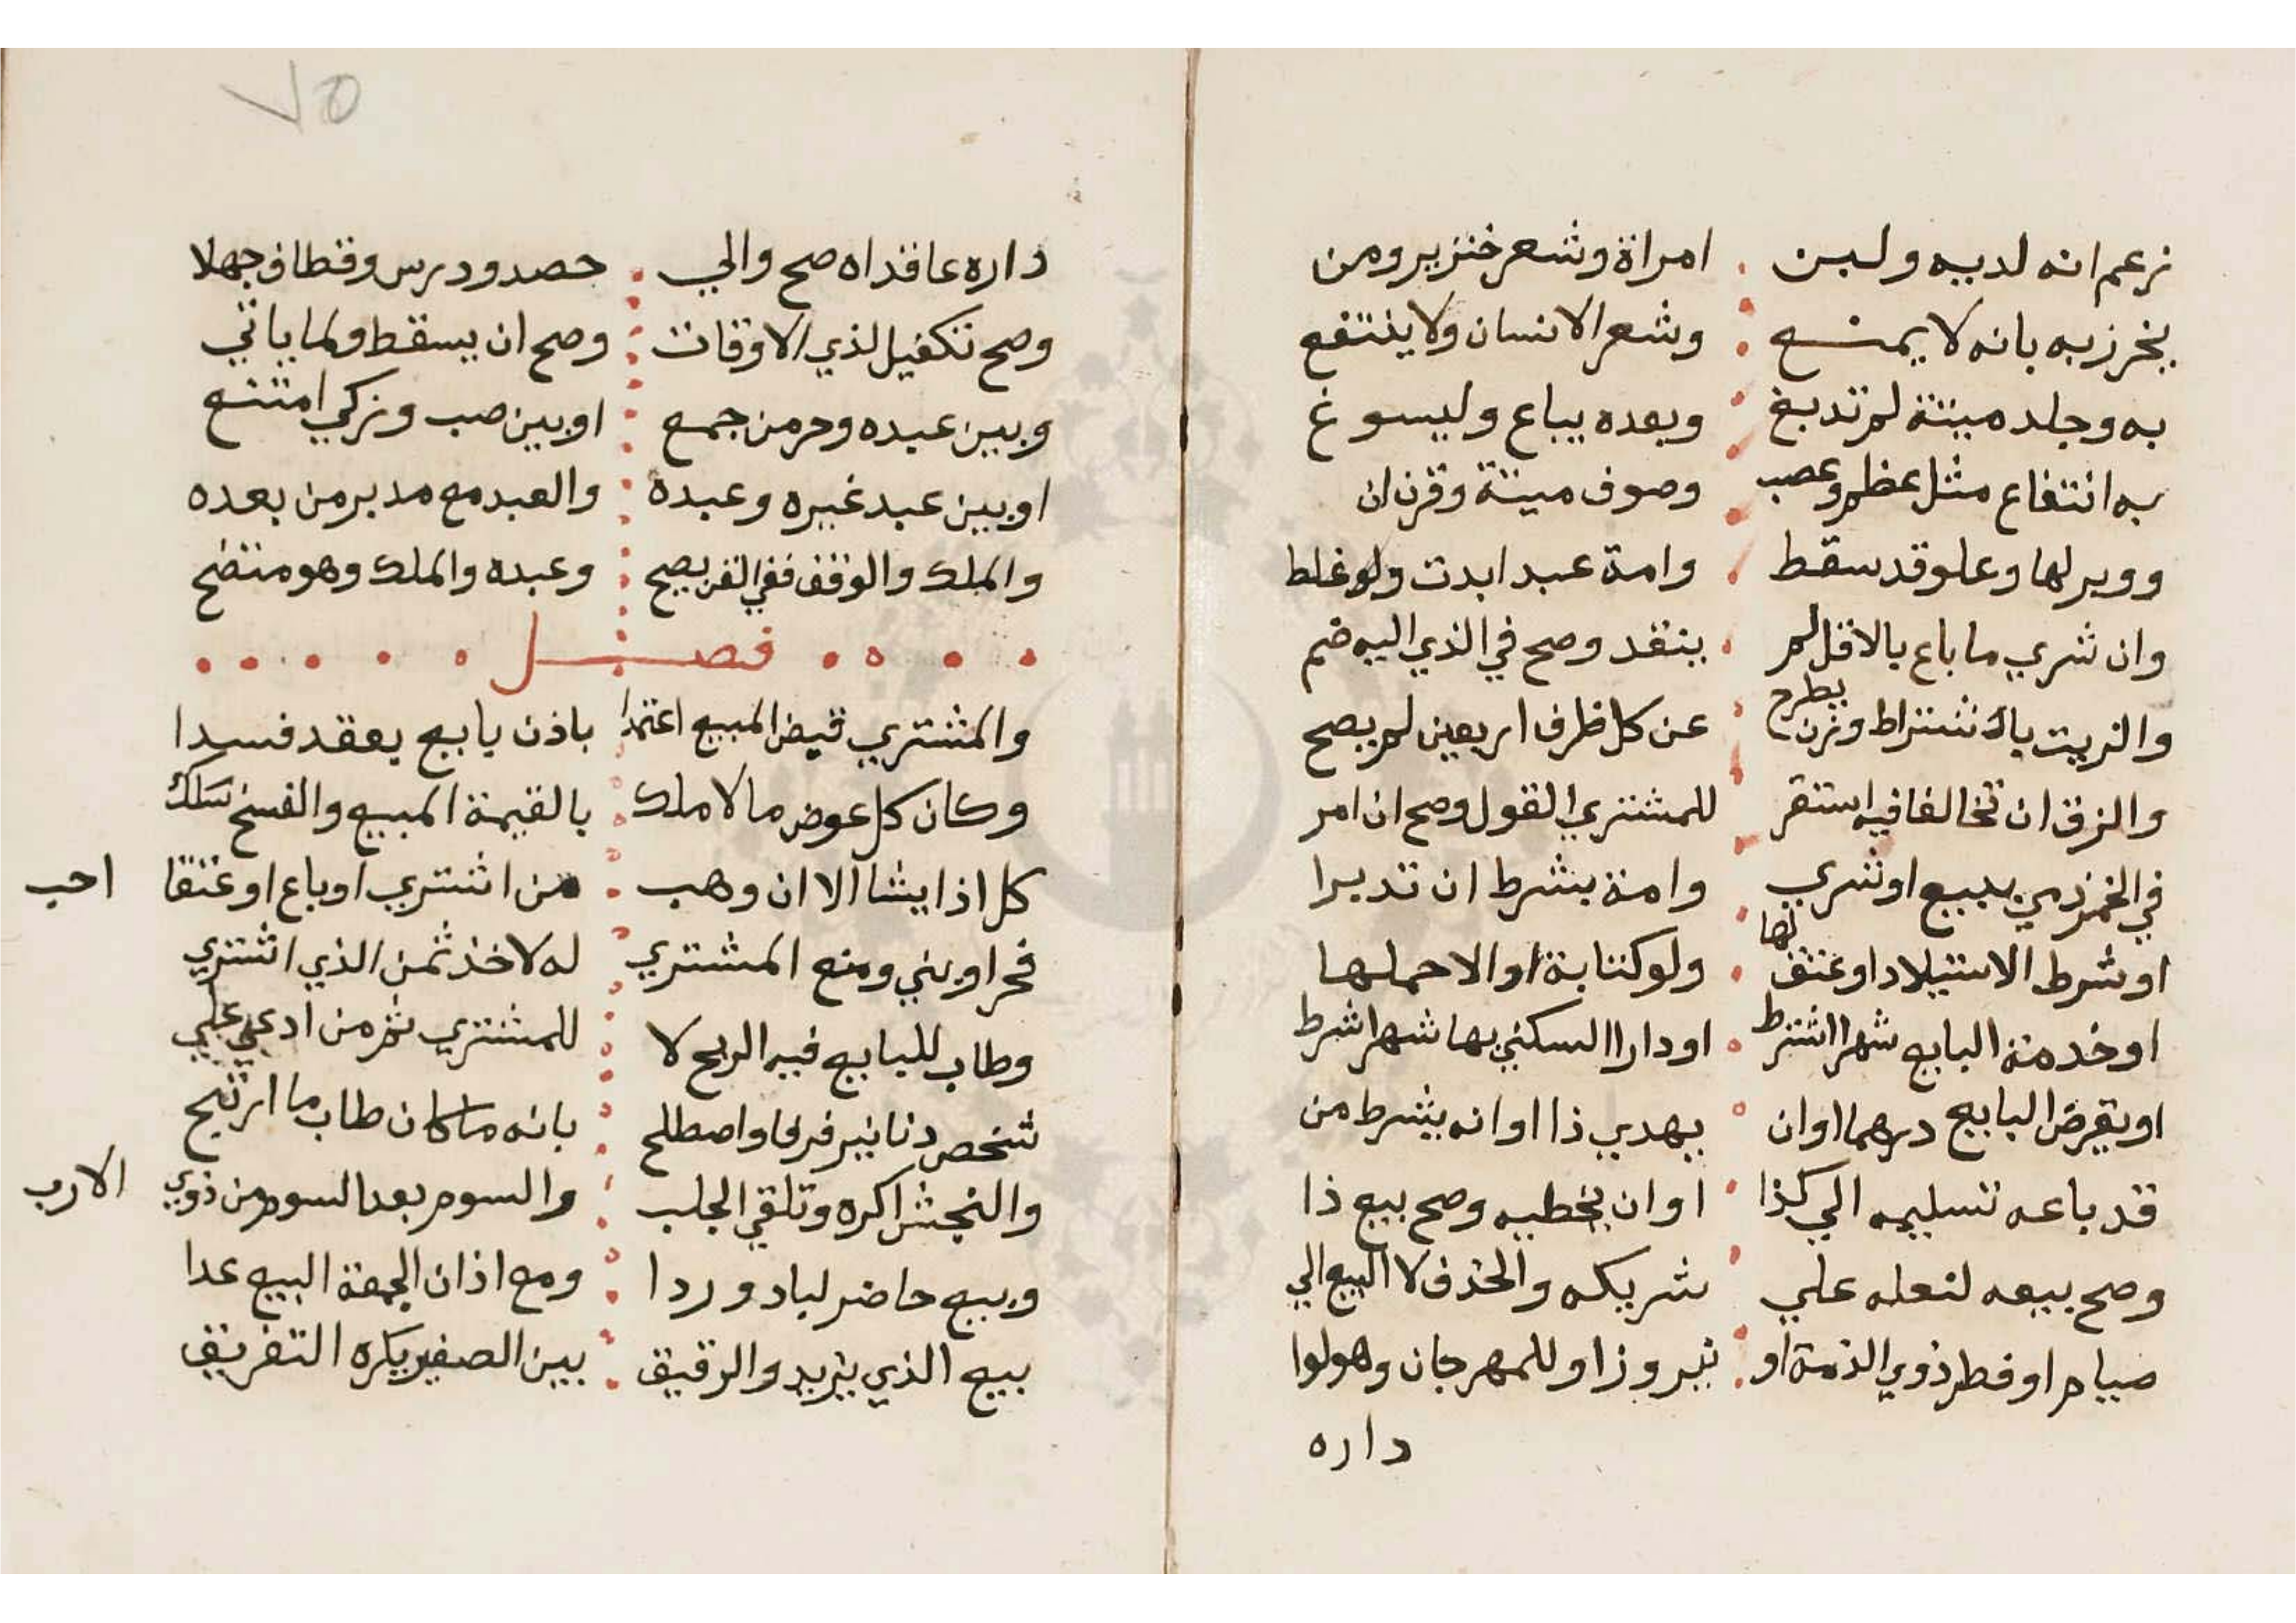 زعم انه لديه ولبن امراة وشعر خنزير ومن
يخرز به بانه لا يمنع وشعر الانسان ولا ينتفع
به وجلد ميتة لم تدبغ وبعده يباع وليسوغ
به انتفاع مثل عظم وعصب وصوف ميتة وقرن ان
ووبر لها وعلو قد سقط وامة عبد ابدت ولو غلط
وان شري ما باع بالاقل لم ينقد وصح في الذي اليه ضم
والزيت باشتراط وزن يطرح عن كل ظرف اربعين لم يصح
والزق ان تخالفا فيه استقر للمشتري القول وصح ان امر
في الخمر ذمي ببيع او شري وامة بشرط ان تدبرا
او شرط الاستيلاد او عتق لها ولو كتابة او الا حملها
او خدمة البايع شهرا اشترط او دارا السكني بها شهرا شرط
او يقرض البايع درهما او ان يهدي ذا او انه بشرط من
قد باعه تسليمه الي كذا او ان يخطيه وصح بيع ذا
وصح بيعه لنعله علي شريكه والحذف لا البيع الي
صيام او فطر ذوي الذمة او نيروز او للمهرجان وهو لوا
داره
٧٥
داره عاقداه صح والي حصد ودرس وقطاف جهلا
وصح تكفيل لذي الاوقات وصح ان يسقط ولما ياتي
وبين عبده وحر من جمع او بين صب وزكي امتنع
او بين عبد غيره وعبده والعبد مع مدبر من بعده
والملك والوقف ففي القن يصح وعبده والملك وهو متضح
فصل
والمشتري قبض المبيع اعتمدا باذن بايع بعقد فسدا
وكان كل عوض مالا ملك بالقيمة المبيع والفسخ سلك
كل اذا يشا الا ان وهب من اشتري او باع او عتقا احب
فحر او بني ومنع المشتري له لاخذ ثمن الذي اشتري
وطاب للبايع فيه الربح لا للمشتري ثم من ادعي علي
شخص دنانير فرفا واصطلح بانه ما كان طاب ما ارتبح
والنجش اكره وتلقي الجلب والسوم بعد السوم من ذوي الارب
وبيع حاضر لباد وردا ومع اذان الجمعة البيع عدا
بيع الذي يزيد والرقيق بين الصغير يكره التفريق